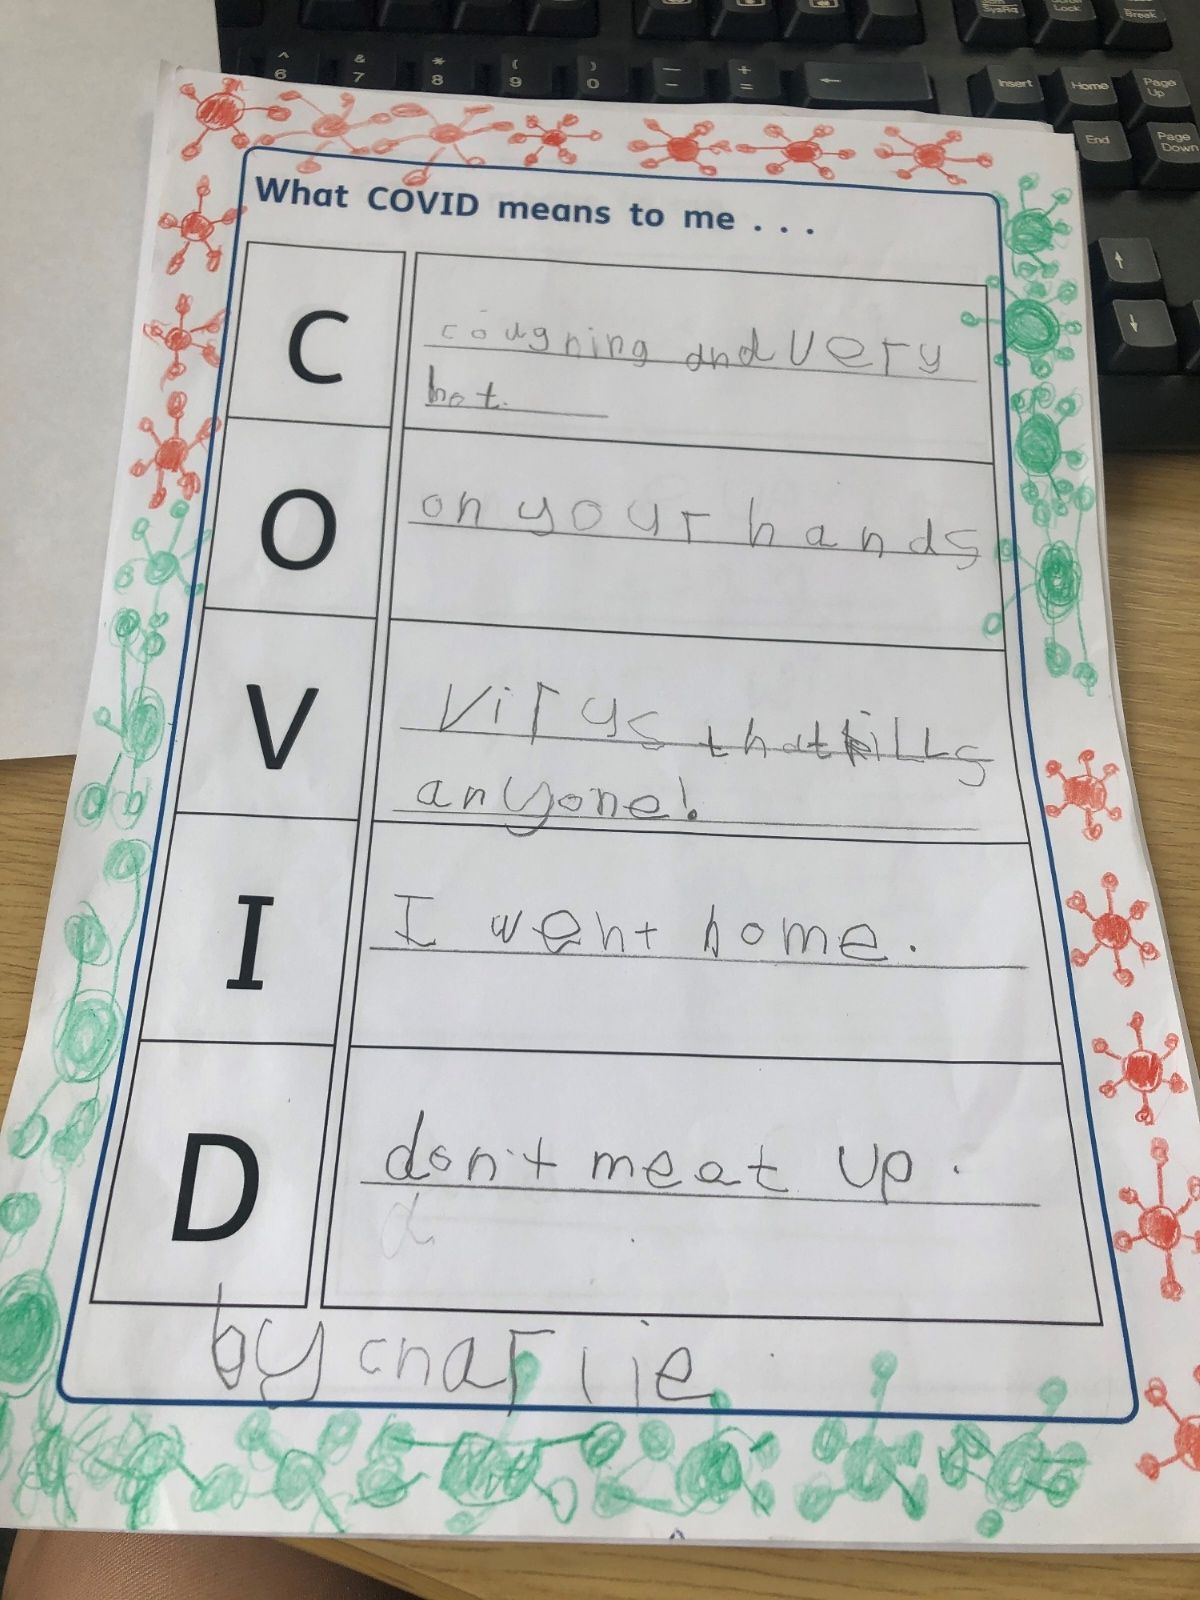 What COVID means to me . . .
C
coughing and very
hot.
O
on your hands
V
Virus that kills
anyone!
I
I went home.
D
don't meat up.
d
by charlie
^
6
&
7
*
8
(
9
)
0
—
-
+
=
←
SysRq
Scroll
Lock
Break
Insert
Home
Page
Up
End
Page
Down
↑
↓